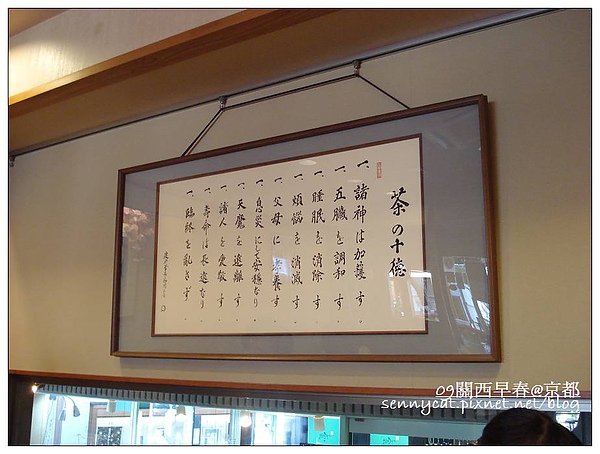 茶の十徳
一、諸神は加護す
一、五臓を調和す
一、睡眠を消除す
一、煩悩を消滅す
一、父母に孝養す
一、息災にも安穏なり
一、天魔を遠離す
一、諸人を愛敬す
一、寿命は長遠なり
一、臨終を乱さず
09關西早春@京都
sennycat.pixnet.net/blog